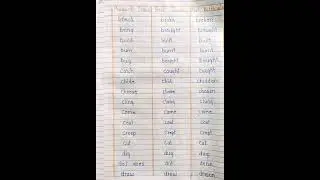 Present Tense Past
bring brought brought
build built built
burn burnt burnt
buy bought bought
catch caught caught
chide chid chidden
choose chose chosen
cling clung clung
come came come
cost cost cost
creep crept crept
cut cut cut
dig dug dug
does did done
draw drew drawn